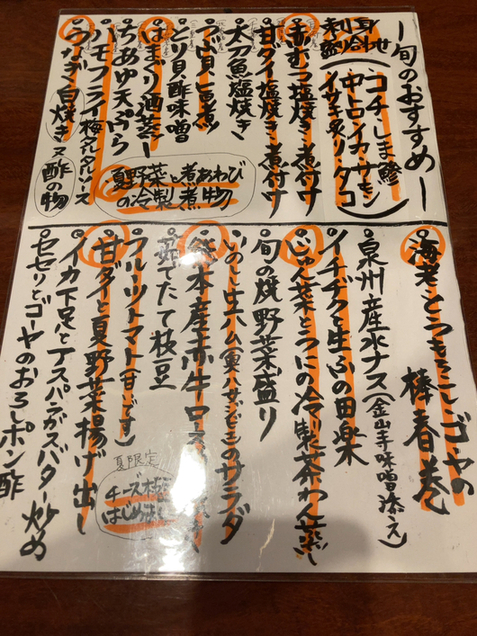 ー旬のおすすめー
刺身盛り合わせ
(コチ・しま鯵
中トロ・イカ・サーモン
イサキ炙り・タコ)
赤むつ塩焼き・煮付け
甘ダイ塩焼き・煮付け
太刀魚塩焼き
つぶ貝旨煮
とり貝酢味噌
はまぐり酒蒸し
ちあゆ天ぷら
ハモフライ梅タルタルソース
うなぎ白焼き
酢の物
あわびと夏野菜の冷製煮物
海老とつきこしゴーヤの
棒春巻
泉州産水ナス(金山寺味噌添え)
イチヂクと生ふの田楽
じゅん菜とうにの冷製茶わん蒸し
旬の焼野菜盛り
いのしし生ハム
のサラダ
熊本産赤牛ロース
茹でたて枝豆
フルーツトマト(甘いです)
夏限定
チーズ
はじめました
甘ダイと夏野菜揚げ出し
イカ下足とアスパラガスバター炒め
セセリとゴーヤのおろしポン酢